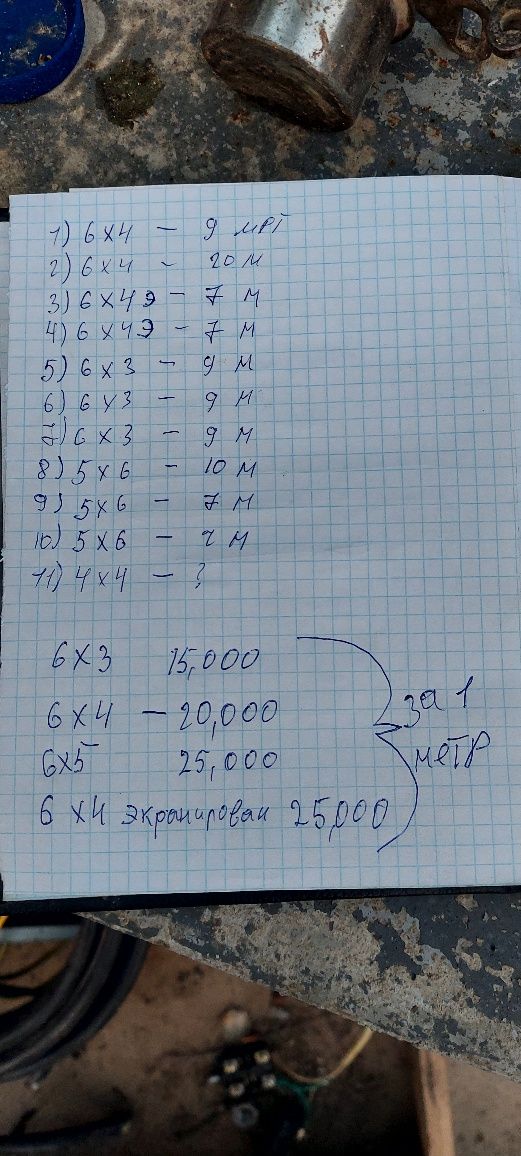 1) 6 x 4 - 9 мрт
2) 6 x 4 - 20 м
3) 6 x 4 э - 7 м
4) 6 x 4 э - 7 м
5) 6 x 3 - 9 м
6) 6 x 3 - 9 м
7) 6 x 3 - 9 м
8) 5 x 6 - 10 м
9) 5 x 6 - 7 м
10) 5 x 6 - м
11) 4 x 4 - ?
6 x 3 15,000
6 x 4 - 20,000
6x5 25,000
6 x 4 экранирован 25,000
за 1
метр